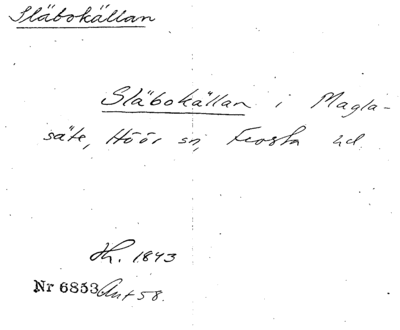 Släbokällan
Släbokällan i Magla-
säte, Höör sn, Frosta hd
Hh. 1843
Nr 6853 Ant 58.